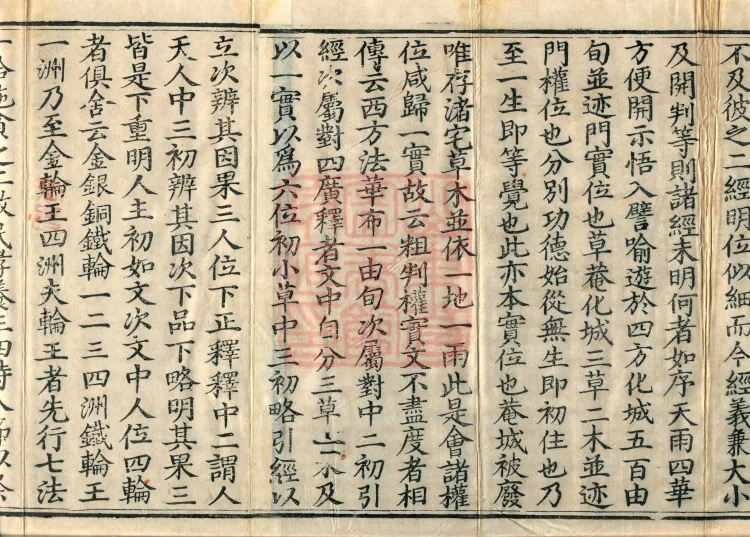 不及彼之二經明位似細而今經義兼大小
及開判等則諸經未明何者如序天雨四華
方便開示悟入譬喻遊於四方化城五百由
旬並迹門實位也草菴化城三草二木並迹
門權位也分別功德始從無生即初住也乃
至一生即等覺也此亦本實位也菴城被廢
唯存渚宅草木並依一地一雨此是會諸權
位咸歸一實故云粗判權實文不盡度者相
傳云西方法華布一由旬次屬對中二初引
經次屬對四廣釋者文中自分三草二木及
以一實以爲六位初小草中三初略引經以
立次辨其因果三人位下正釋釋中二謂人
天人中三初辨其因次下品下略明其果三
皆是下重明人主初如文次文中人位四輪
者俱舍云金銀銅鐵輪一二三四洲鐵輪王
一洲乃至金輪王四洲夫輪王者先行七法